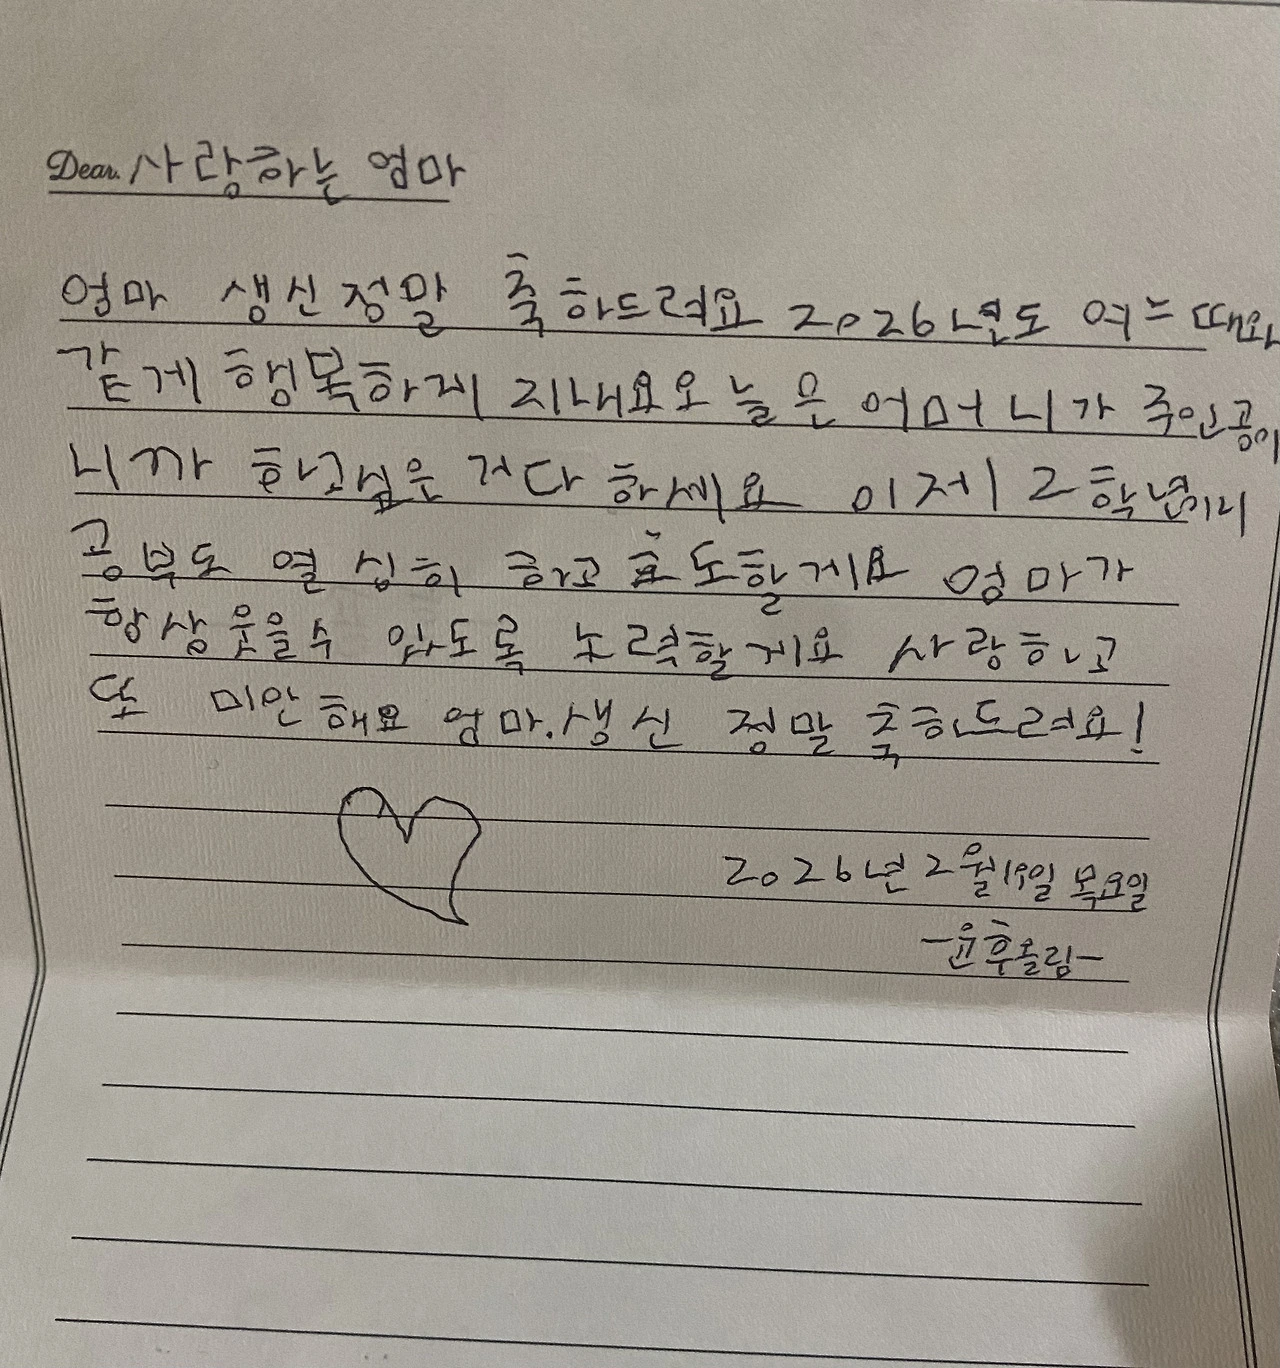 Dear. 사랑하는 엄마
엄마 생신정말 축하드려요 2026년도 여느 때와
같게 행복하게 지내요오늘은 어머니가 주인공이
니까 하고싶은 거다 하세요 이제 2학년이니
공부도 열심히 하고 효도할게요 엄마가
항상 웃을수 있도록 노력할게요 사랑하고
또 미안해요 엄마.생신 정말 축하드려요!
2026년 2월19일 목요일
-윤후올림-